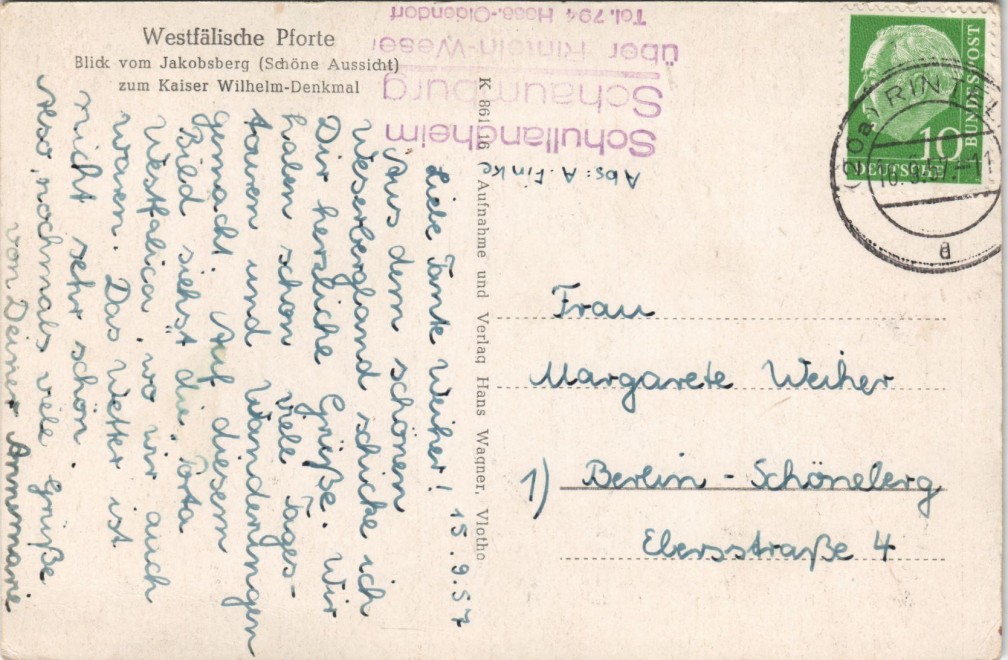 Westfälische Pforte
Blick vom Jakobsberg (Schöne Aussicht)
zum Kaiser Wilhelm-Denkmal
Schullandheim
Schaumburg
über Rinteln-Weser
Tel. 794 Hess.-Oldendorf
Abs: A. Finke
15.9.57
Liebe Tante Weiher!
Aus dem schönen
Weserbergland schicke ich
Dir herzliche Grüße. Wir
haben schon viele Tages-
touren und Wanderungen
gemacht. Auf diesem
Bild siehst die "Porta
Westfalica", wo wir auch
waren. Das Wetter ist
nicht sehr schön.
Also, nochmals viele Grüße
von Deiner Annemarie
K 861/16 Aufnahme und Verlag Hans Wagner, Vlotho
DEUTSCHE
BUNDESPOST
10
RIN
a
Frau
Margarete Weiher
1) Berlin-Schöneberg
Ebersstraße 4